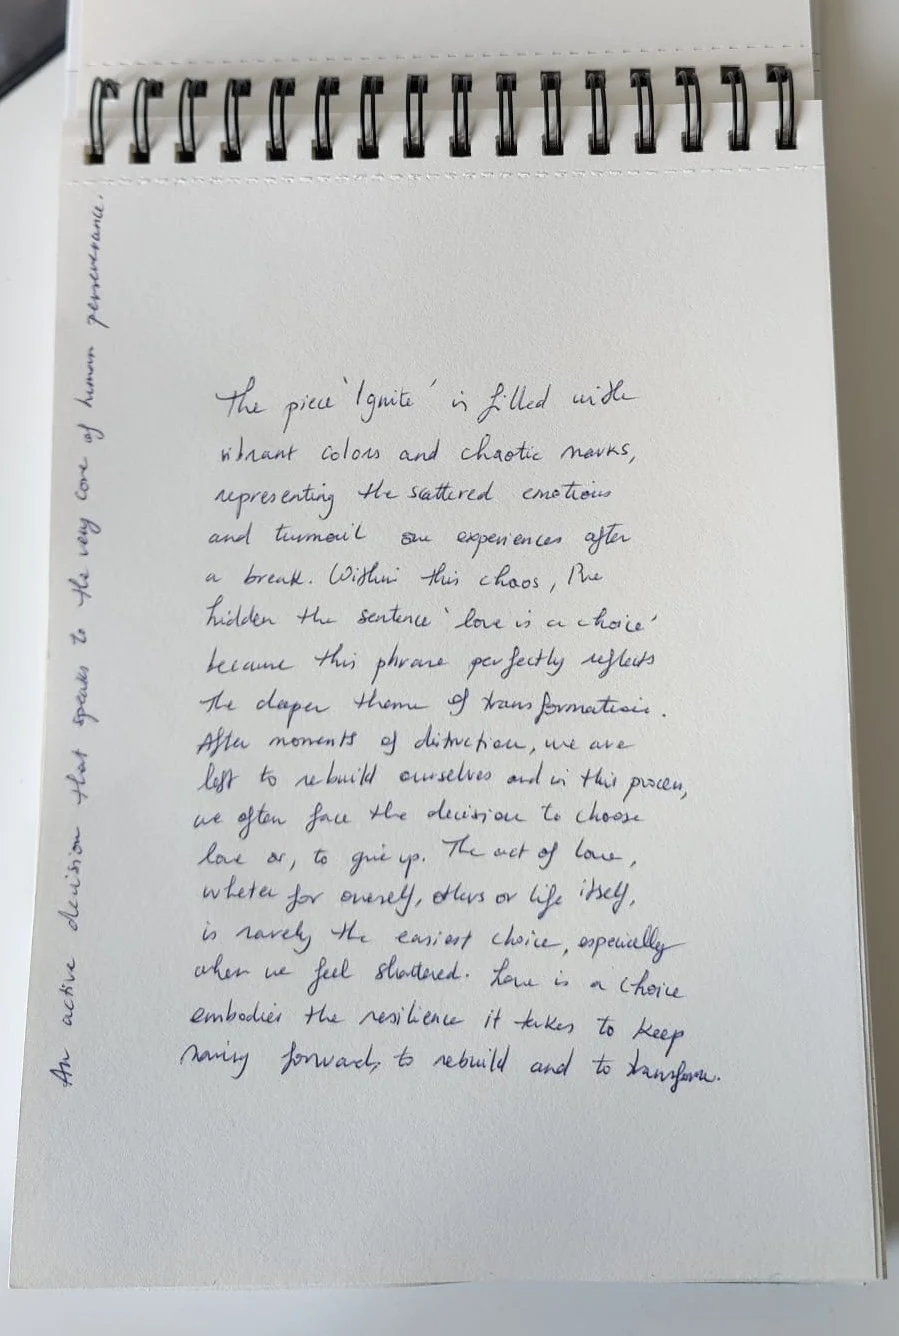 The piece 'Ignite' is filled with
vibrant colors and chaotic marks,
representing the scattered emotions
and turmoil one experiences after
a break. Within this chaos, I've
hidden the sentence 'love is a choice'
because this phrase perfectly reflects
the deeper theme of transformation.
After moments of distruction, we are
left to rebuild ourselves and in this process,
we often face the decision to choose
love or, to give up. The act of love,
wheter for oneself, others or life itself,
is rarely the easiest choice, especially
when we feel shattered. Love is a choice
embodies the resilience it takes to keep
moving forward, to rebuild and to transform.
An active decision that speaks to the very core of human perseverance.